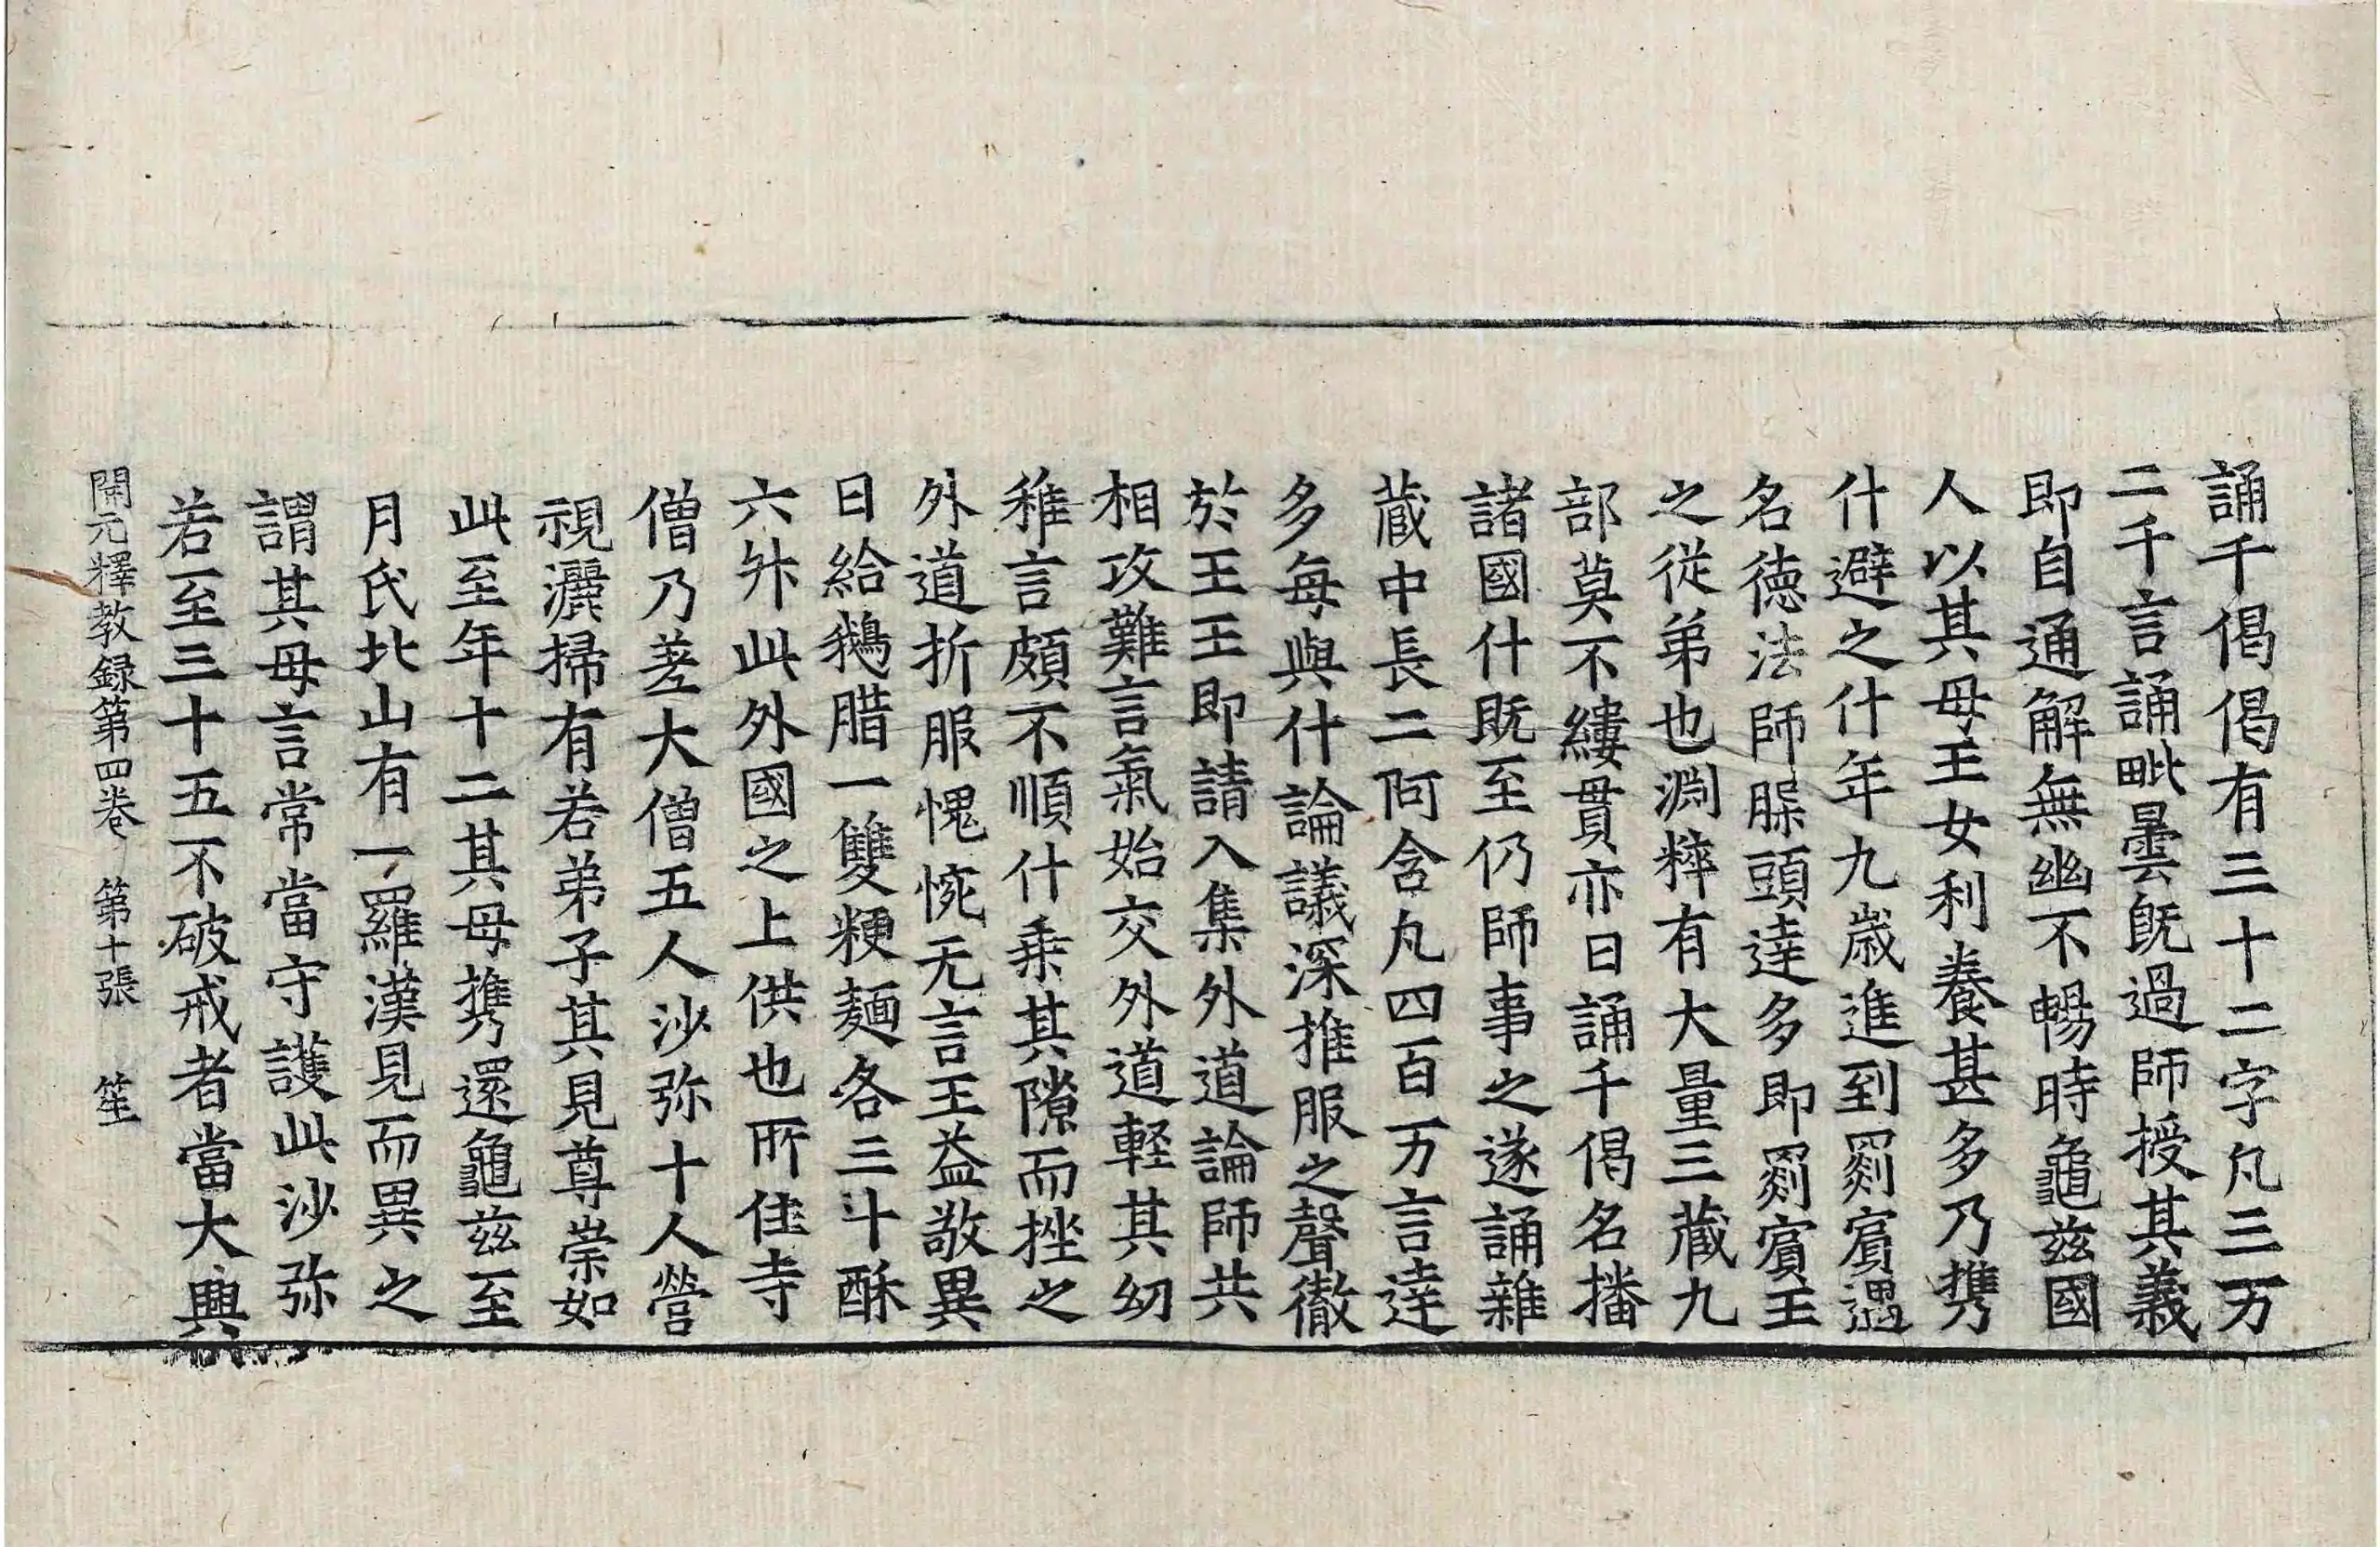 誦千偈偈有三十二字凡三万
二千言誦毗曇旣過師授其義
即自通解無幽不暢時龜茲國
人以其母王女利養甚多乃携
什避之什年九歲進到罽賓遇
名德法師脲頭達多即罽賓王
之從弟也淵粹有大量三藏九
部莫不縷貫亦日誦千偈名播
諸國什旣至仍師事之遂誦雜
藏中長二阿含凡四百万言達
多每與什論議深推服之聲徹
於王王即請入集外道論師共
相攻難言氣始交外道輕其幼
稚言頗不順什乗其隙而挫之
外道折服愧惋无言王益敬異
日給鵝腊一雙粳麺各三斗酥
六升此外國之上供也所住寺
僧乃差大僧五人沙弥十人營
視灑掃有若弟子其見尊崇如
此至年十二其母携還龜茲至
月氏北山有一羅漢見而異之
謂其母言常當守護此沙弥
若至三十五不破戒者當大興
開元釋教録第四卷 第十張 笙